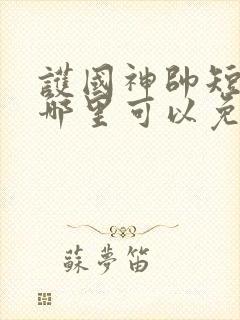 護國神帥短
哪里可以免
蘇夢笛